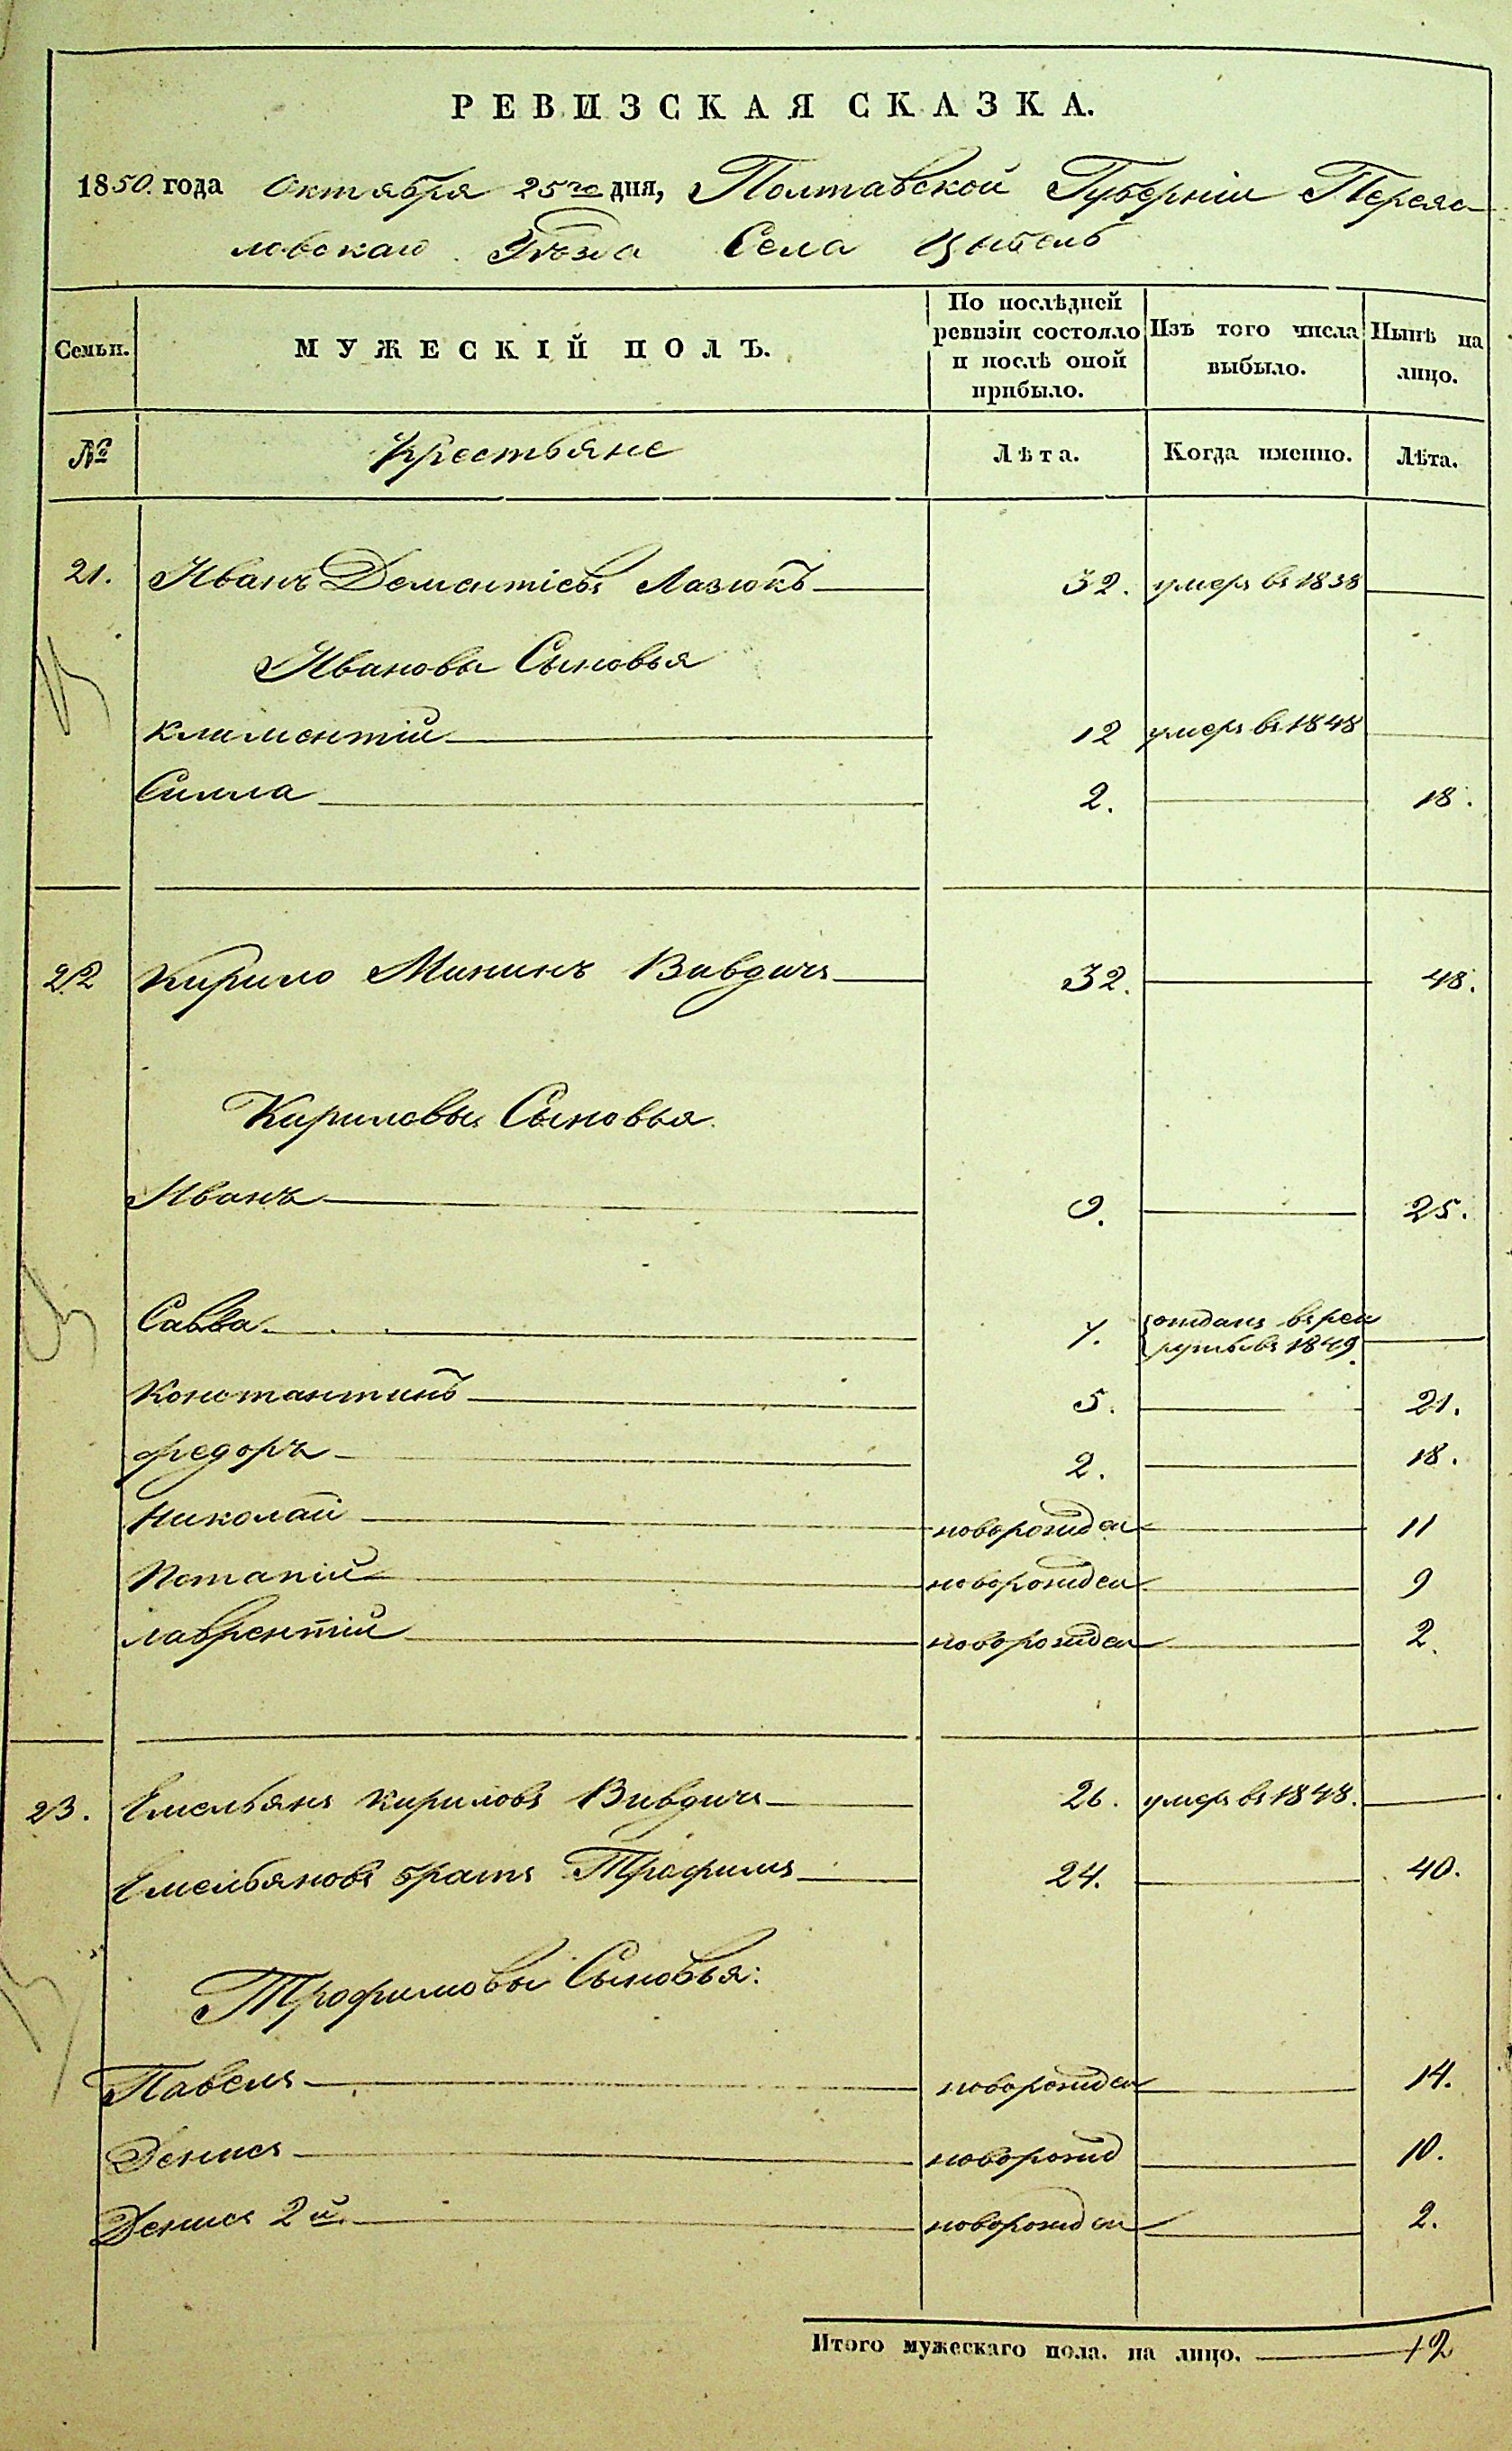 РЕВИЗСКАЯ СКАЗКА.
1850. года Октября 25го дня, Полтавской Губерніи Перемс-
ловскаго Уѣзда Села Цибель
Семьи. МУЖЕСКІЙ ПОЛЪ. По послѣдней ревизіи состояло и послѣ оной прибыло. Изъ того числа выбыло. Нынѣ на лицо.
№ Крестьяне Лѣта. Когда именно. Лѣта.
21. Иванъ Дементіевъ Лазюкъ 32. умеръ въ 1838
Ивановы Сыновья
Климентій 12 умеръ въ 1848
Силла 2. 18.
22 Кирило Мининъ Вивдичъ 32. 48.
Кириловы Сыновья.
Иванъ 9. 25.
Савва 7. отданъ въ рек
руты въ 1849.
Константинъ 5. 21.
Федоръ 2. 18.
Николай новорожден 11
Потапій новорожден 9
Лаврентій новорожден 2.
23. Емельянъ Кириловъ Вивдичъ 26. умеръ въ 1848.
Емельяновъ братъ Трофимъ 24. 40.
Трофимовы Сыновья:
Павелъ новорожден 14.
Денисъ новорожд 10.
Денисъ 2й новорожден 2.
Итого мужескаго пола. на лицо. 12